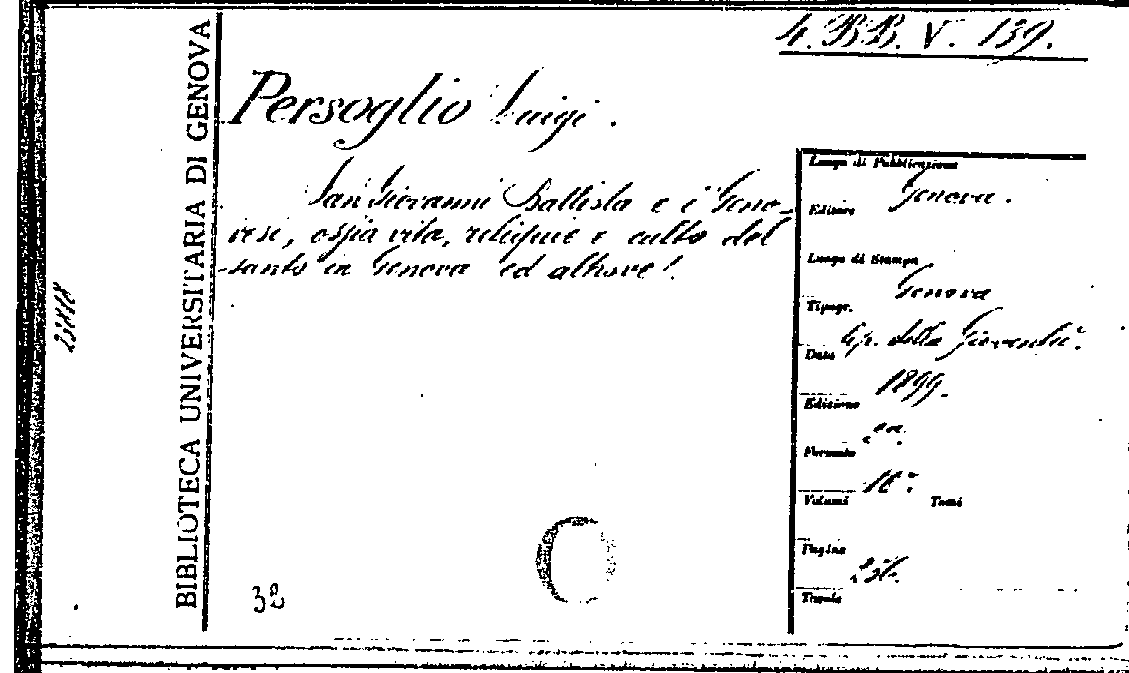 4. BB. V. 139.
BIBLIOTECA UNIVERSITARIA DI GENOVA
Persoglio Luigi.
San Giovanni Battista e i Geno-
vesi, ossia vita, reliquie e culto del
santo in Genova ed altrove.
Luogo di Pubblicazione
Genova.
Editore
Luogo di Stampa
Genova
Tipogr.
tip. della Gioventù.
Data
1899.
Edizione
Formato
Volumi
Tomi
Pagine
Tavole
32